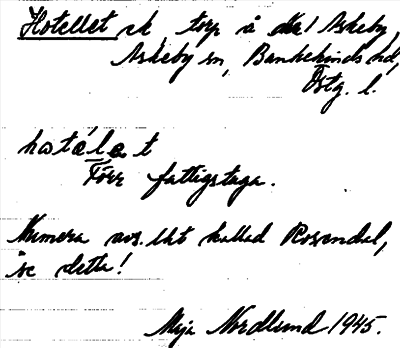 Hotellet ck, torp å Kr! Askeby,
Askeby sn, Bankekinds hd,
Östg. l.
hotälet
Förr fattigstuga.
Numera avs. lht kallad Rosendal,
se detta!
Maja Nordlund 1945.